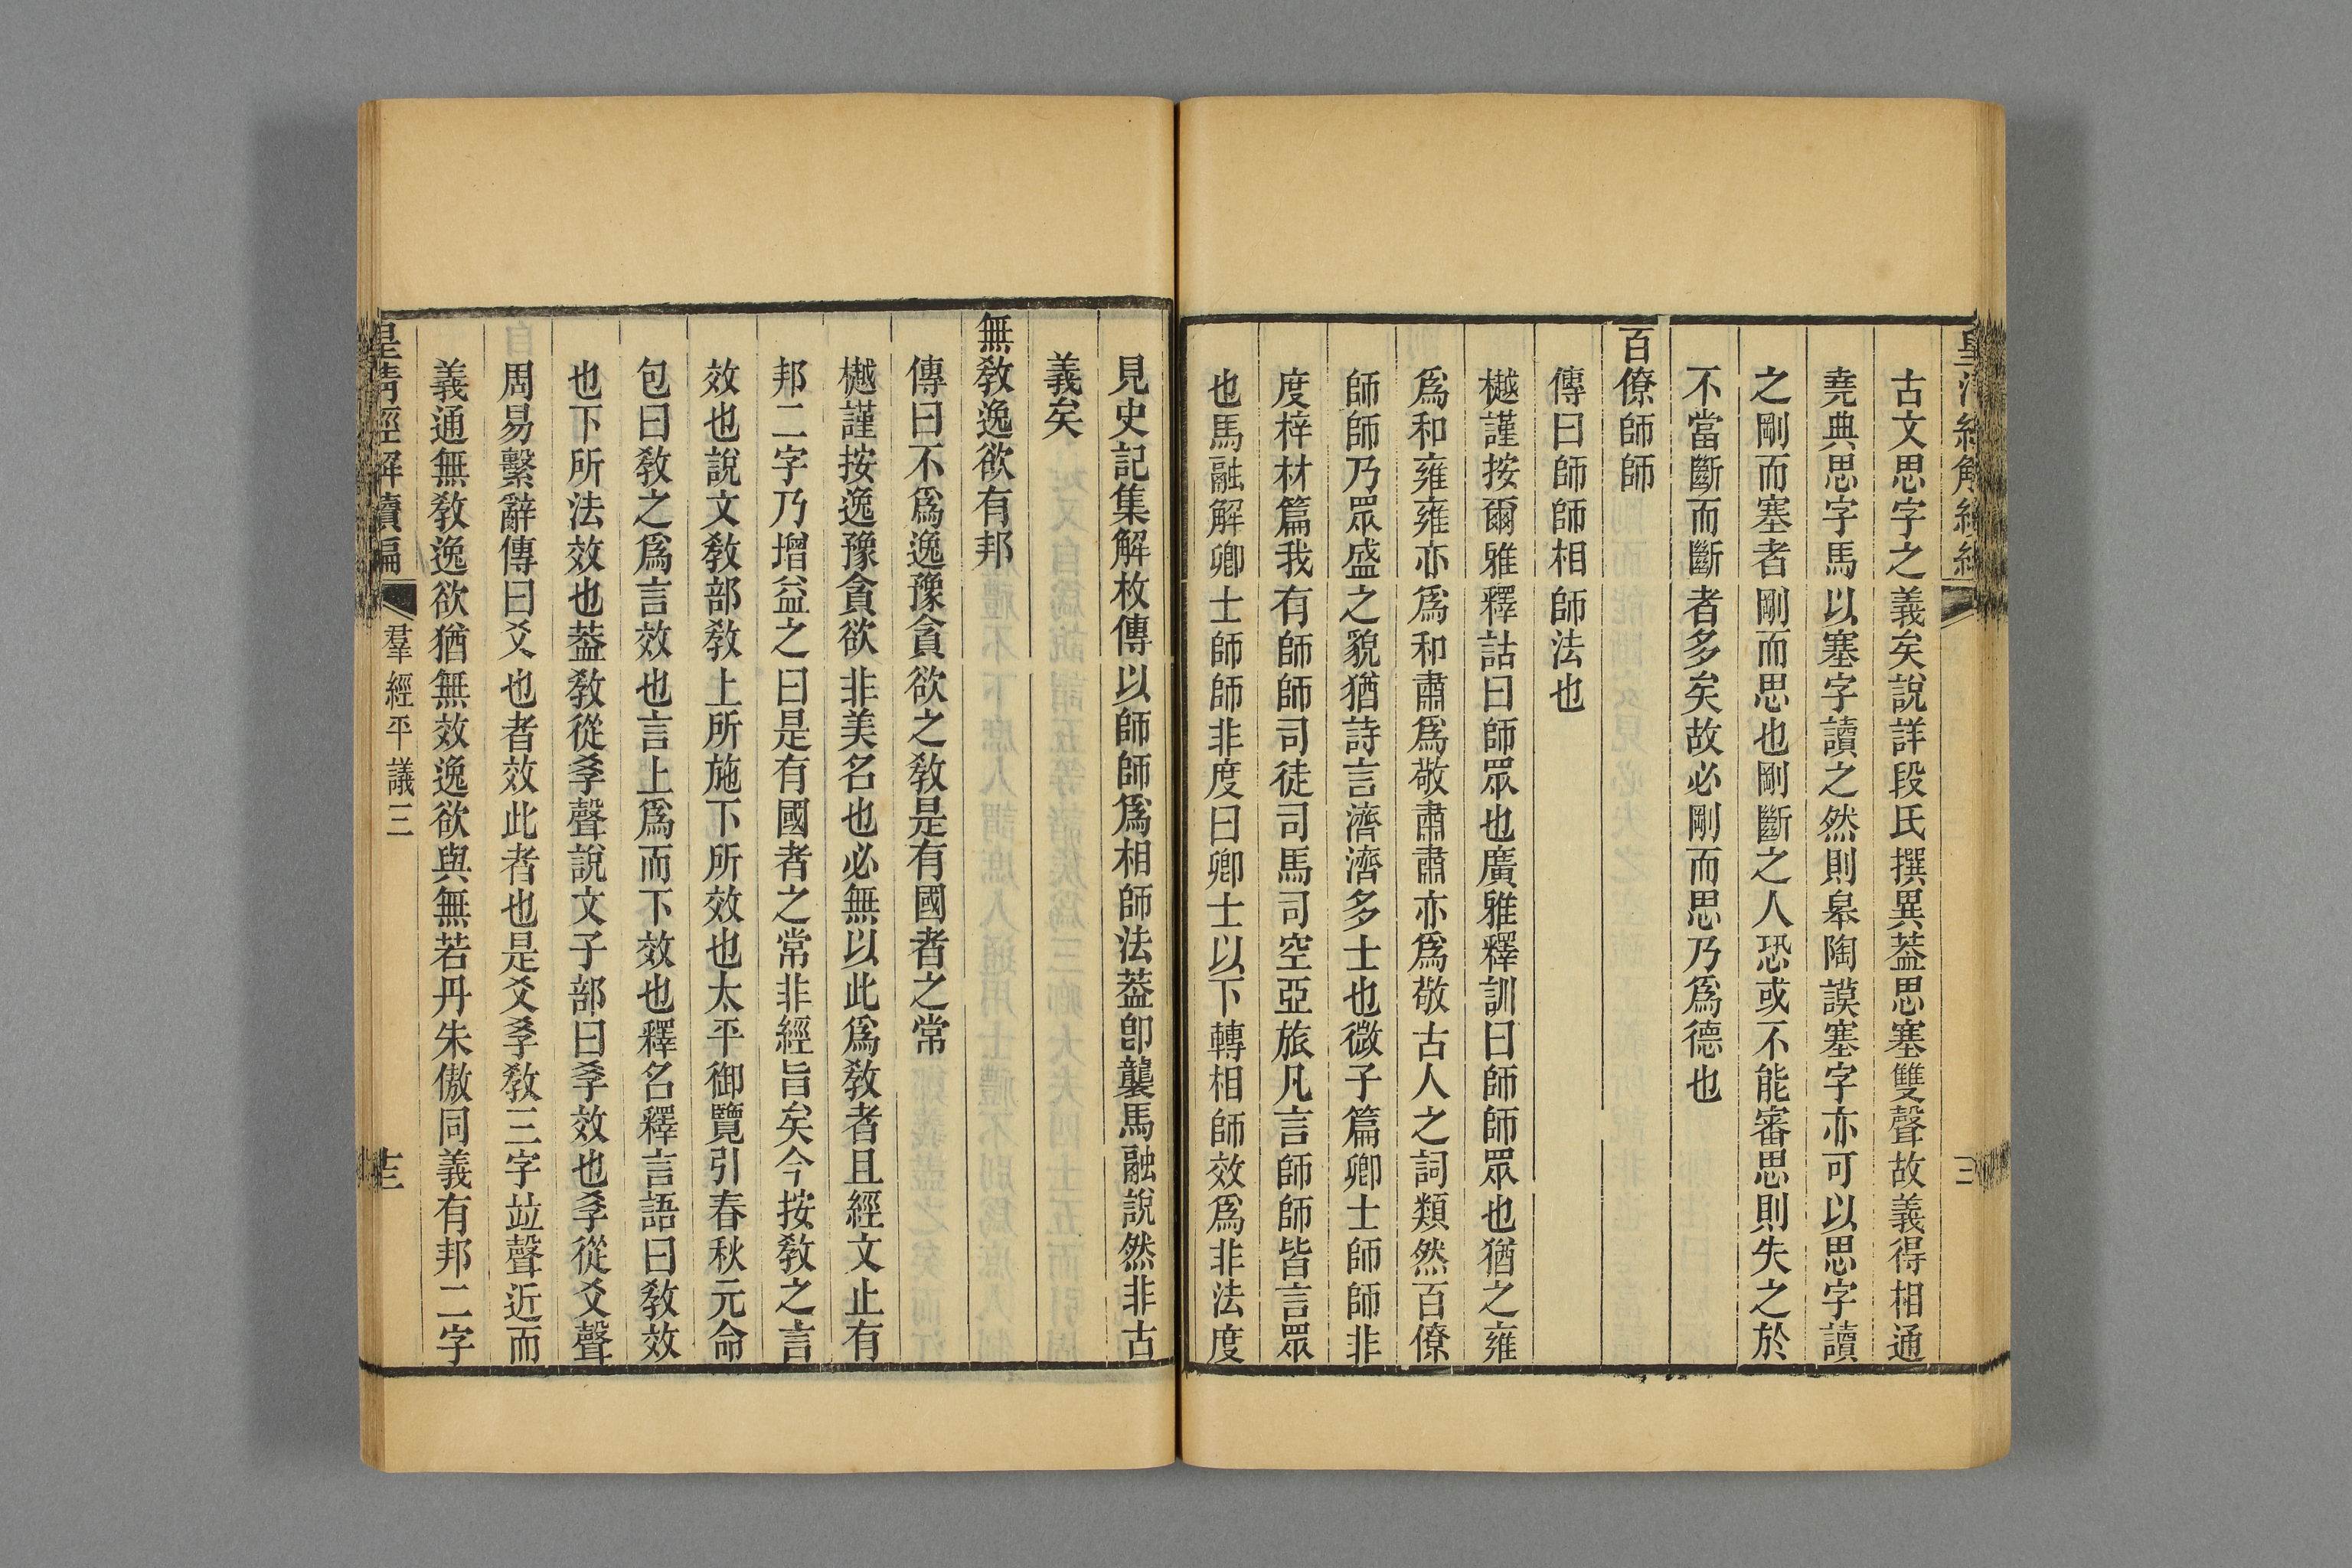 古文思字之義矣說詳段氏撰異葢思塞雙聲故義得相通
堯典思字馬以塞字讀之然則皋陶謨塞字亦可以思字讀
之剛而塞者剛而思也剛斷之人恐或不能審思則失之於
不當斷而斷者多矣故必剛而思乃爲德也
百僚師師
傳曰師師相師法也
樾謹按爾雅釋詁曰師眾也廣雅釋訓曰師師眾也猶之雍
爲和雍雍亦爲和肅爲敬肅肅亦爲敬古人之詞類然百僚
師師乃眾盛之貌猶詩言濟濟多士也微子篇卿士師師非
度梓材篇我有師師司徒司馬司空亞旅凡言師師皆言眾
也馬融解卿士師師非度曰卿士以下轉相師效爲非法度
見史記集解枚傳以師師爲相師法葢卽襲馬融說然非古
義矣
無敎逸欲有邦
傳曰不爲逸豫貪欲之敎是有國者之常
樾謹按逸豫貪欲非美名也必無以此爲敎者且經文止有
邦二字乃增益之曰是有國者之常非經旨矣今按敎之言
效也說文敎部敎上所施下所效也太平御覽引春秋元命
包曰敎之爲言效也言上爲而下效也釋名釋言語曰敎效
也下所法效也葢敎從孝聲說文子部曰孝效也孝從爻聲
周易繫辭傳曰爻也者效此者也是爻孝敎三字竝聲近而
義通無敎逸欲猶無效逸欲與無若丹朱傲同義有邦二字
皇清經解續編
羣經平議三